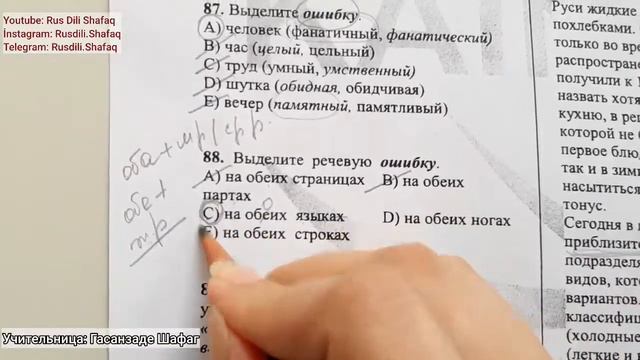 Youtube: Rus Dili Shafaq
İnstagram: Rusdili.Shafaq
Telegram: Rusdili.Shafaq
87. Выделите ошибку.
A) человек (фанатичный, фанатический)
B) час (целый, цельный)
C) труд (умный, умственный)
D) шутка (обидная, обидчивая)
E) вечер (памятный, памятливый)
88. Выделите речевую ошибку.
A) на обеих страницах B) на обеих
партах
C) на обеих языках D) на обеих ногах
E) на обеих строках
оба + мр / ср р.
обе +
жр
Руси жидкие
похлебками.
только во врем
распростране
получили к
назвать хотя
кухню, в ре
которой не б
первое блю
так и в зим
насытиться
тонус.
Сегодня в
приблизите
подразделя
видов, кот
вариантов.
классифиц
(холодные
(легкие и
Учительница: Гасанзаде Шафаг